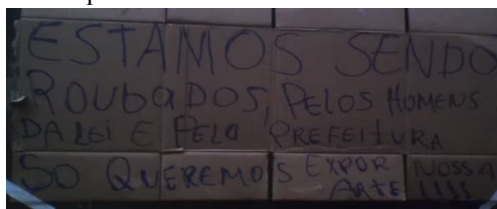 ESTAMOS SENDO
ROUBADOS, PELOS HOMENS
DA LEI E PELA PREFEITURA
SO QUEREMOS EXPOR NOSSA
ARTE !!!!